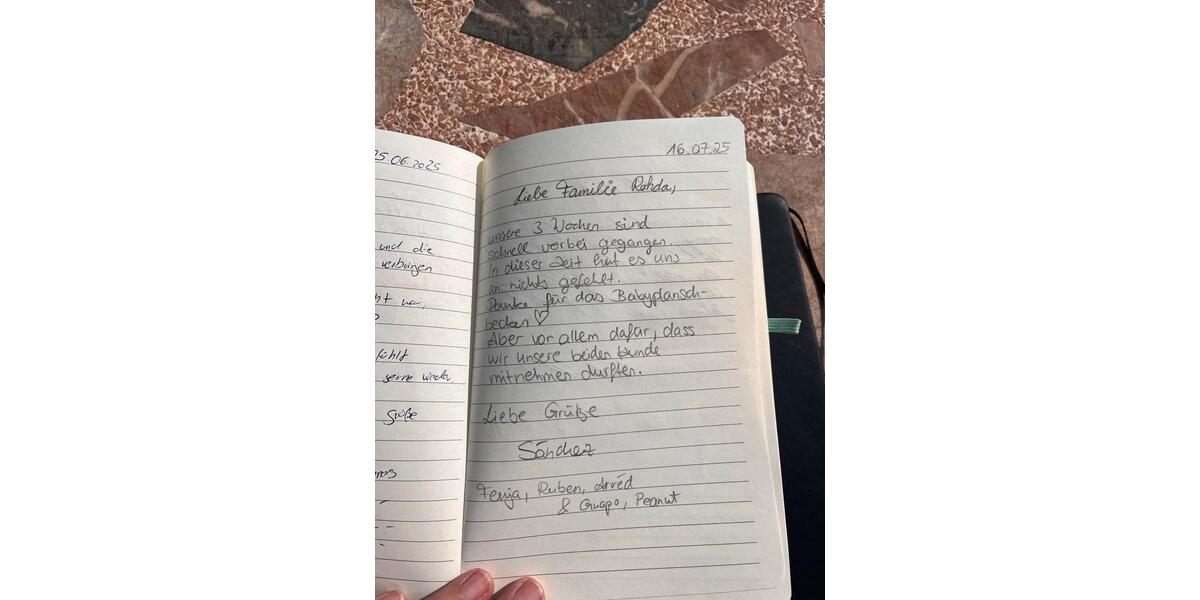 25.06.2025
und die
verbringen
war,
fühlt
gerne wieder
große
16.07.25
Liebe Familie Rohda,
unsere 3 Wochen sind
schnell vorbei gegangen.
In dieser Zeit hat es uns
an nichts gefehlt.
Danke für das Babyplansch-
becken ♡
Aber vor allem dafür, dass
wir unsere beiden Hunde
mitnehmen durften.
Liebe Grüße
Sánchez
Fenja, Ruben, Arvéd
& Guapo, Peanut